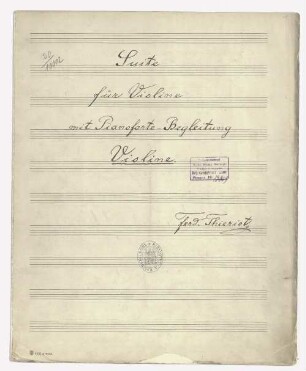 Suite
für Violine
mit Pianoforte-Begleitung
Violine.
Ferd. Thieriot